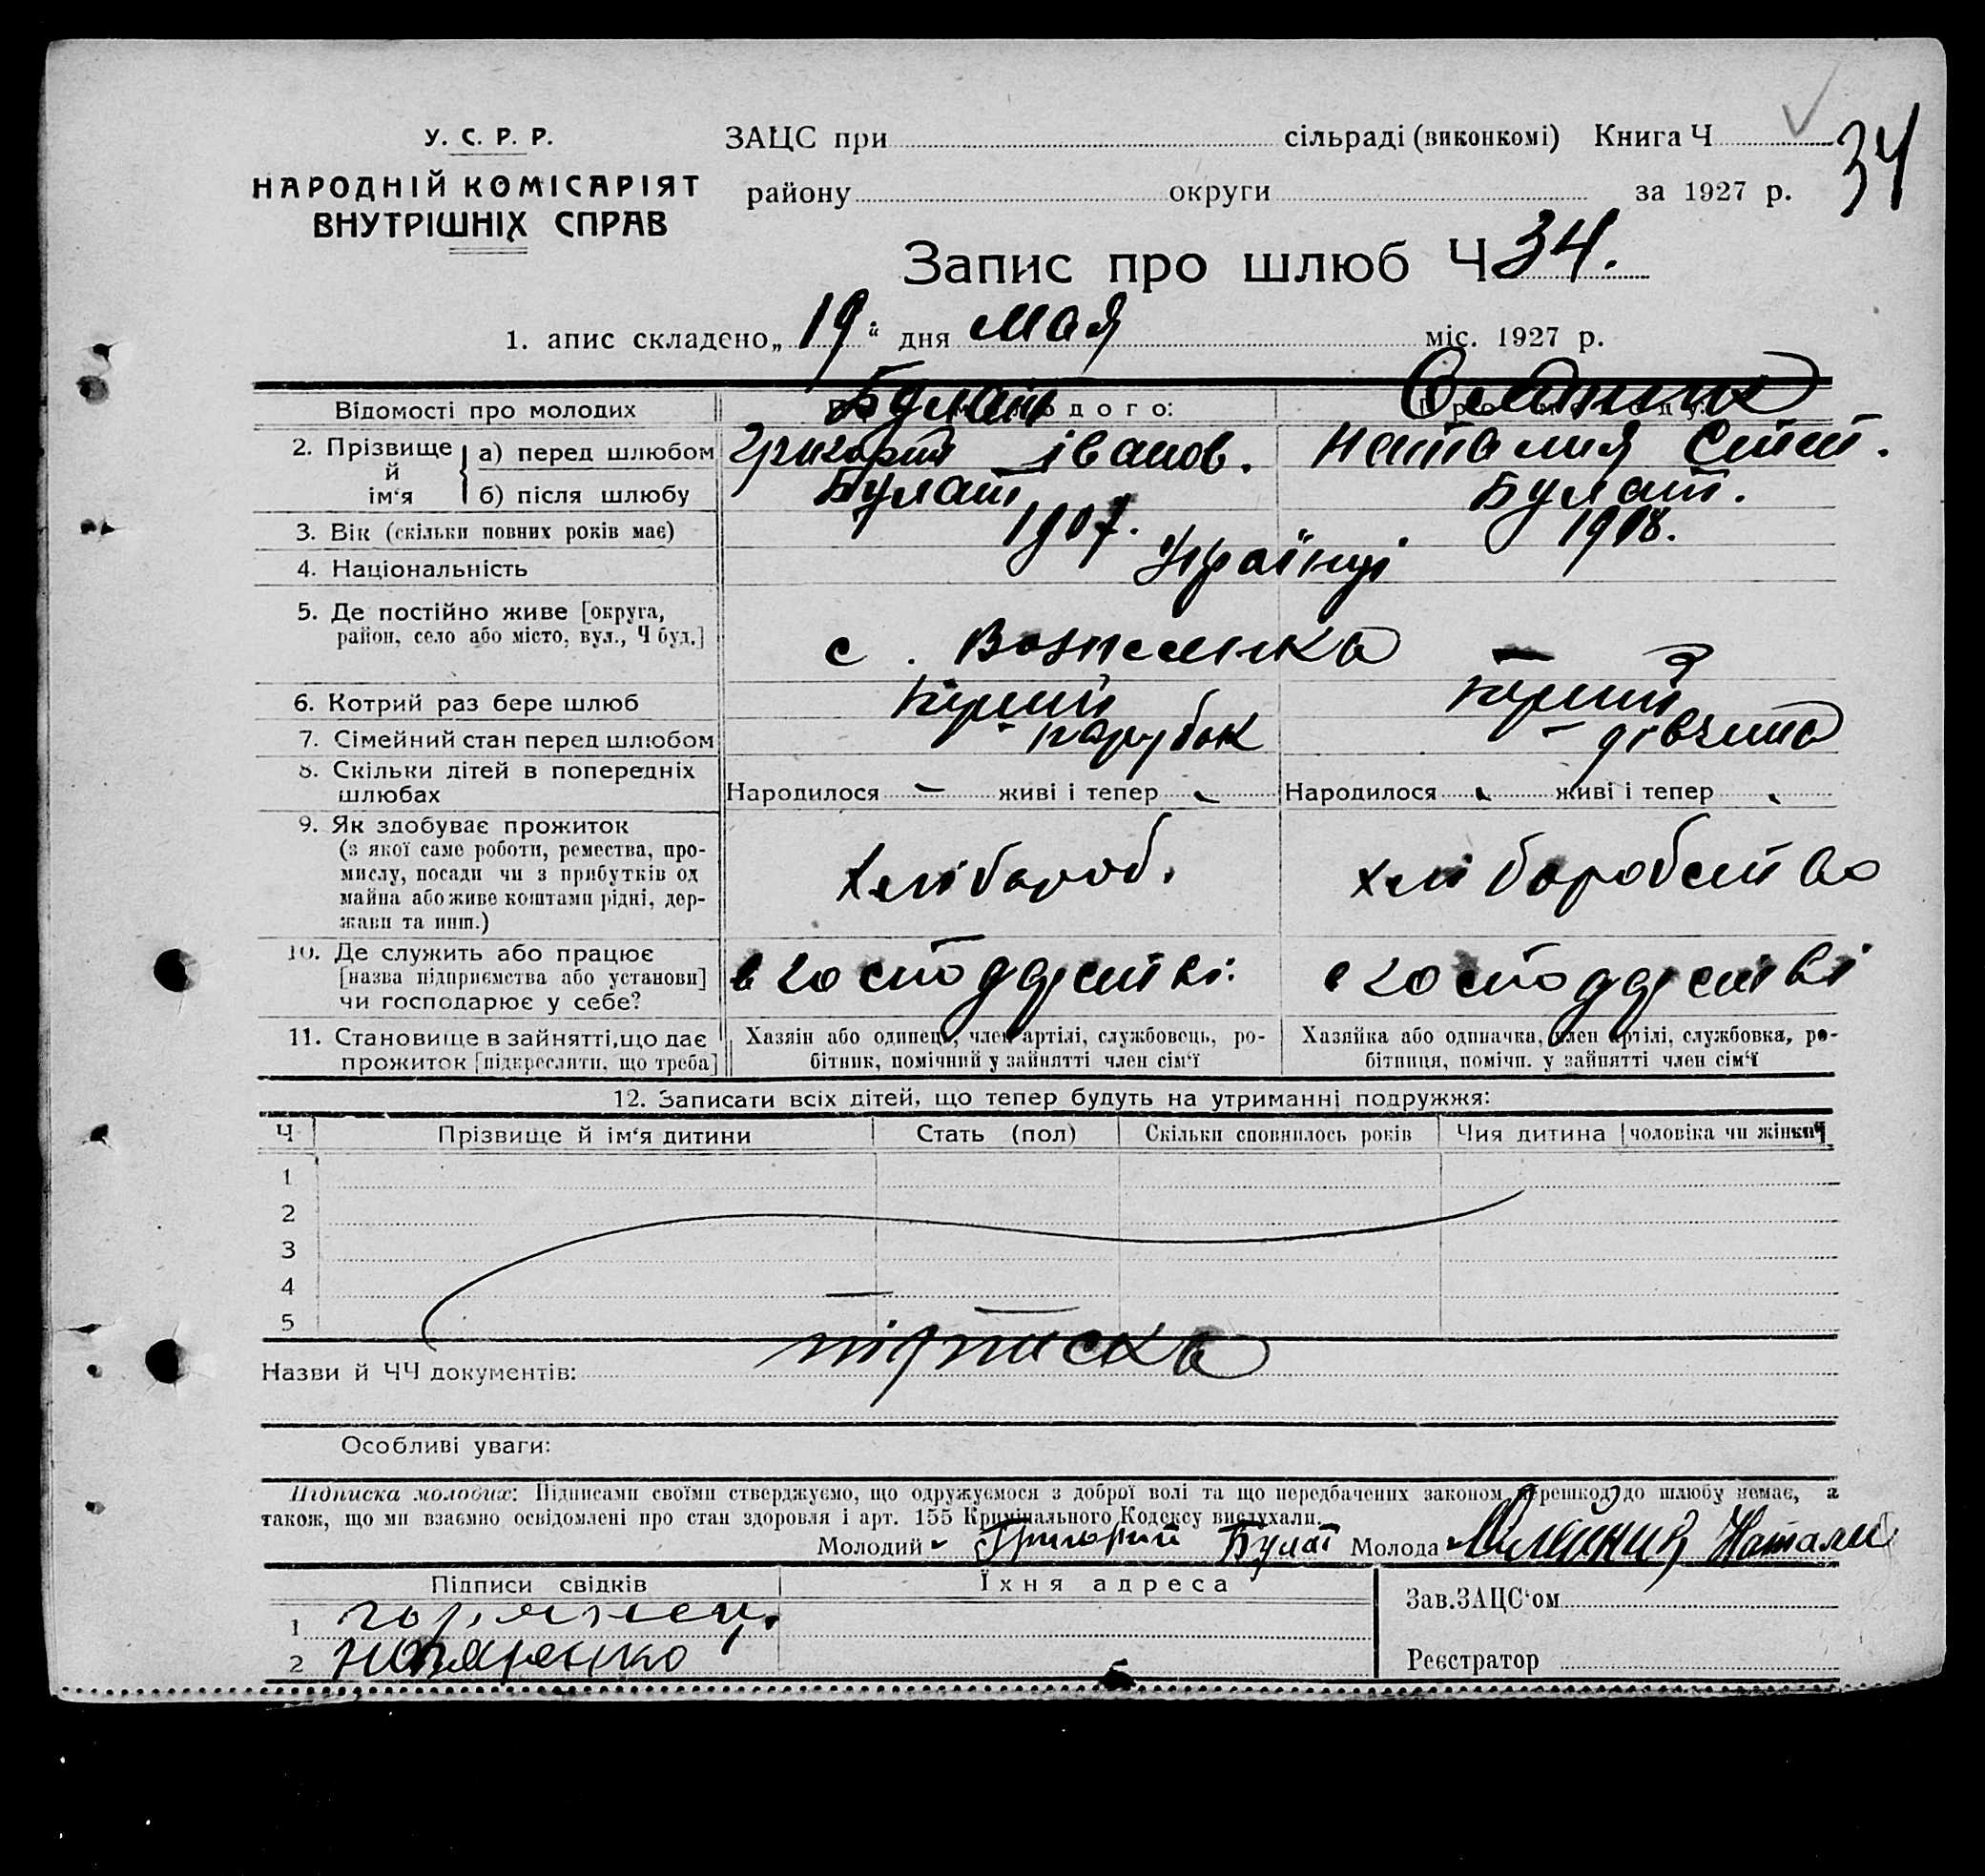 У. С. Р. Р.
НАРОДНІЙ КОМІСАРІЯТ
ВНУТРІШНІХ СПРАВ
ЗАЦС при сільраді (виконкомі) Книга Ч 34
району округи за 1927 р.
Запис про шлюб Ч 34.
1. апис складено „19“ дня мая міс. 1927 р.
Булат Олейник
Відомості про молодих
2. Прізвище й ім‘я
а) перед шлюбом Григорий Іванов. Наталия Степ.
б) після шлюбу Булат Булат.
3. Вік (скільки повних років має) 1907. 1908.
4. Національність Українці
5. Де постійно живе [округа, район, село або місто, вул., Ч буд.] с. Вознесенка —
6. Котрий раз бере шлюб перший перший
7. Сімейний стан перед шлюбом — парубок — дівчина
8. Скільки дітей в попередніх шлюбах Народилося — живі і тепер - Народилося - живі і тепер -
9. Як здобуває прожиток
(з якої саме роботи, ремества, про-
мислу, посади чи з прибутків од
майна або живе коштами рідні, дер-
жави та инш.)
хлібороб. хліборобство
10. Де служить або працює
[назва підприємства або установи]
чи господарює у себе?
в господарстві в господарстві
11. Становище в зайнятті, що дає
прожиток [підкреслити, що треба]
Хазяін або одинець, член артілі, службовець, ро-
бітник, помічний у зайнятті член сім‘ї
Хазяйка або одиначка, член артілі, службовка, ро-
бітниця, помічн. у зайнятті член сім‘ї
12. Записати всіх дітей, що тепер будуть на утриманні подружжя:
Ч Прізвище й ім‘я дитини Стать (пол) Скільки сповнилось років Чия дитина [чоловіка чи жінки]
1
2
3
4
5
Назви й ЧЧ документів: підписка
Особливі уваги:
Підписка молодих: Підписами своїми стверджуємо, що одружуємося з доброї волі та що передбачених законом перешкод до шлюбу немає, а
також, що ми взаємно освідомлені про стан здоровля і арт. 155 Кримінального Кодексу вислухали.
Молодий Григорий Булат Молода Олейник Натали
Підписи свідків Їхня адреса
1
2
Зав.ЗАЦС‘ом
Реєстратор